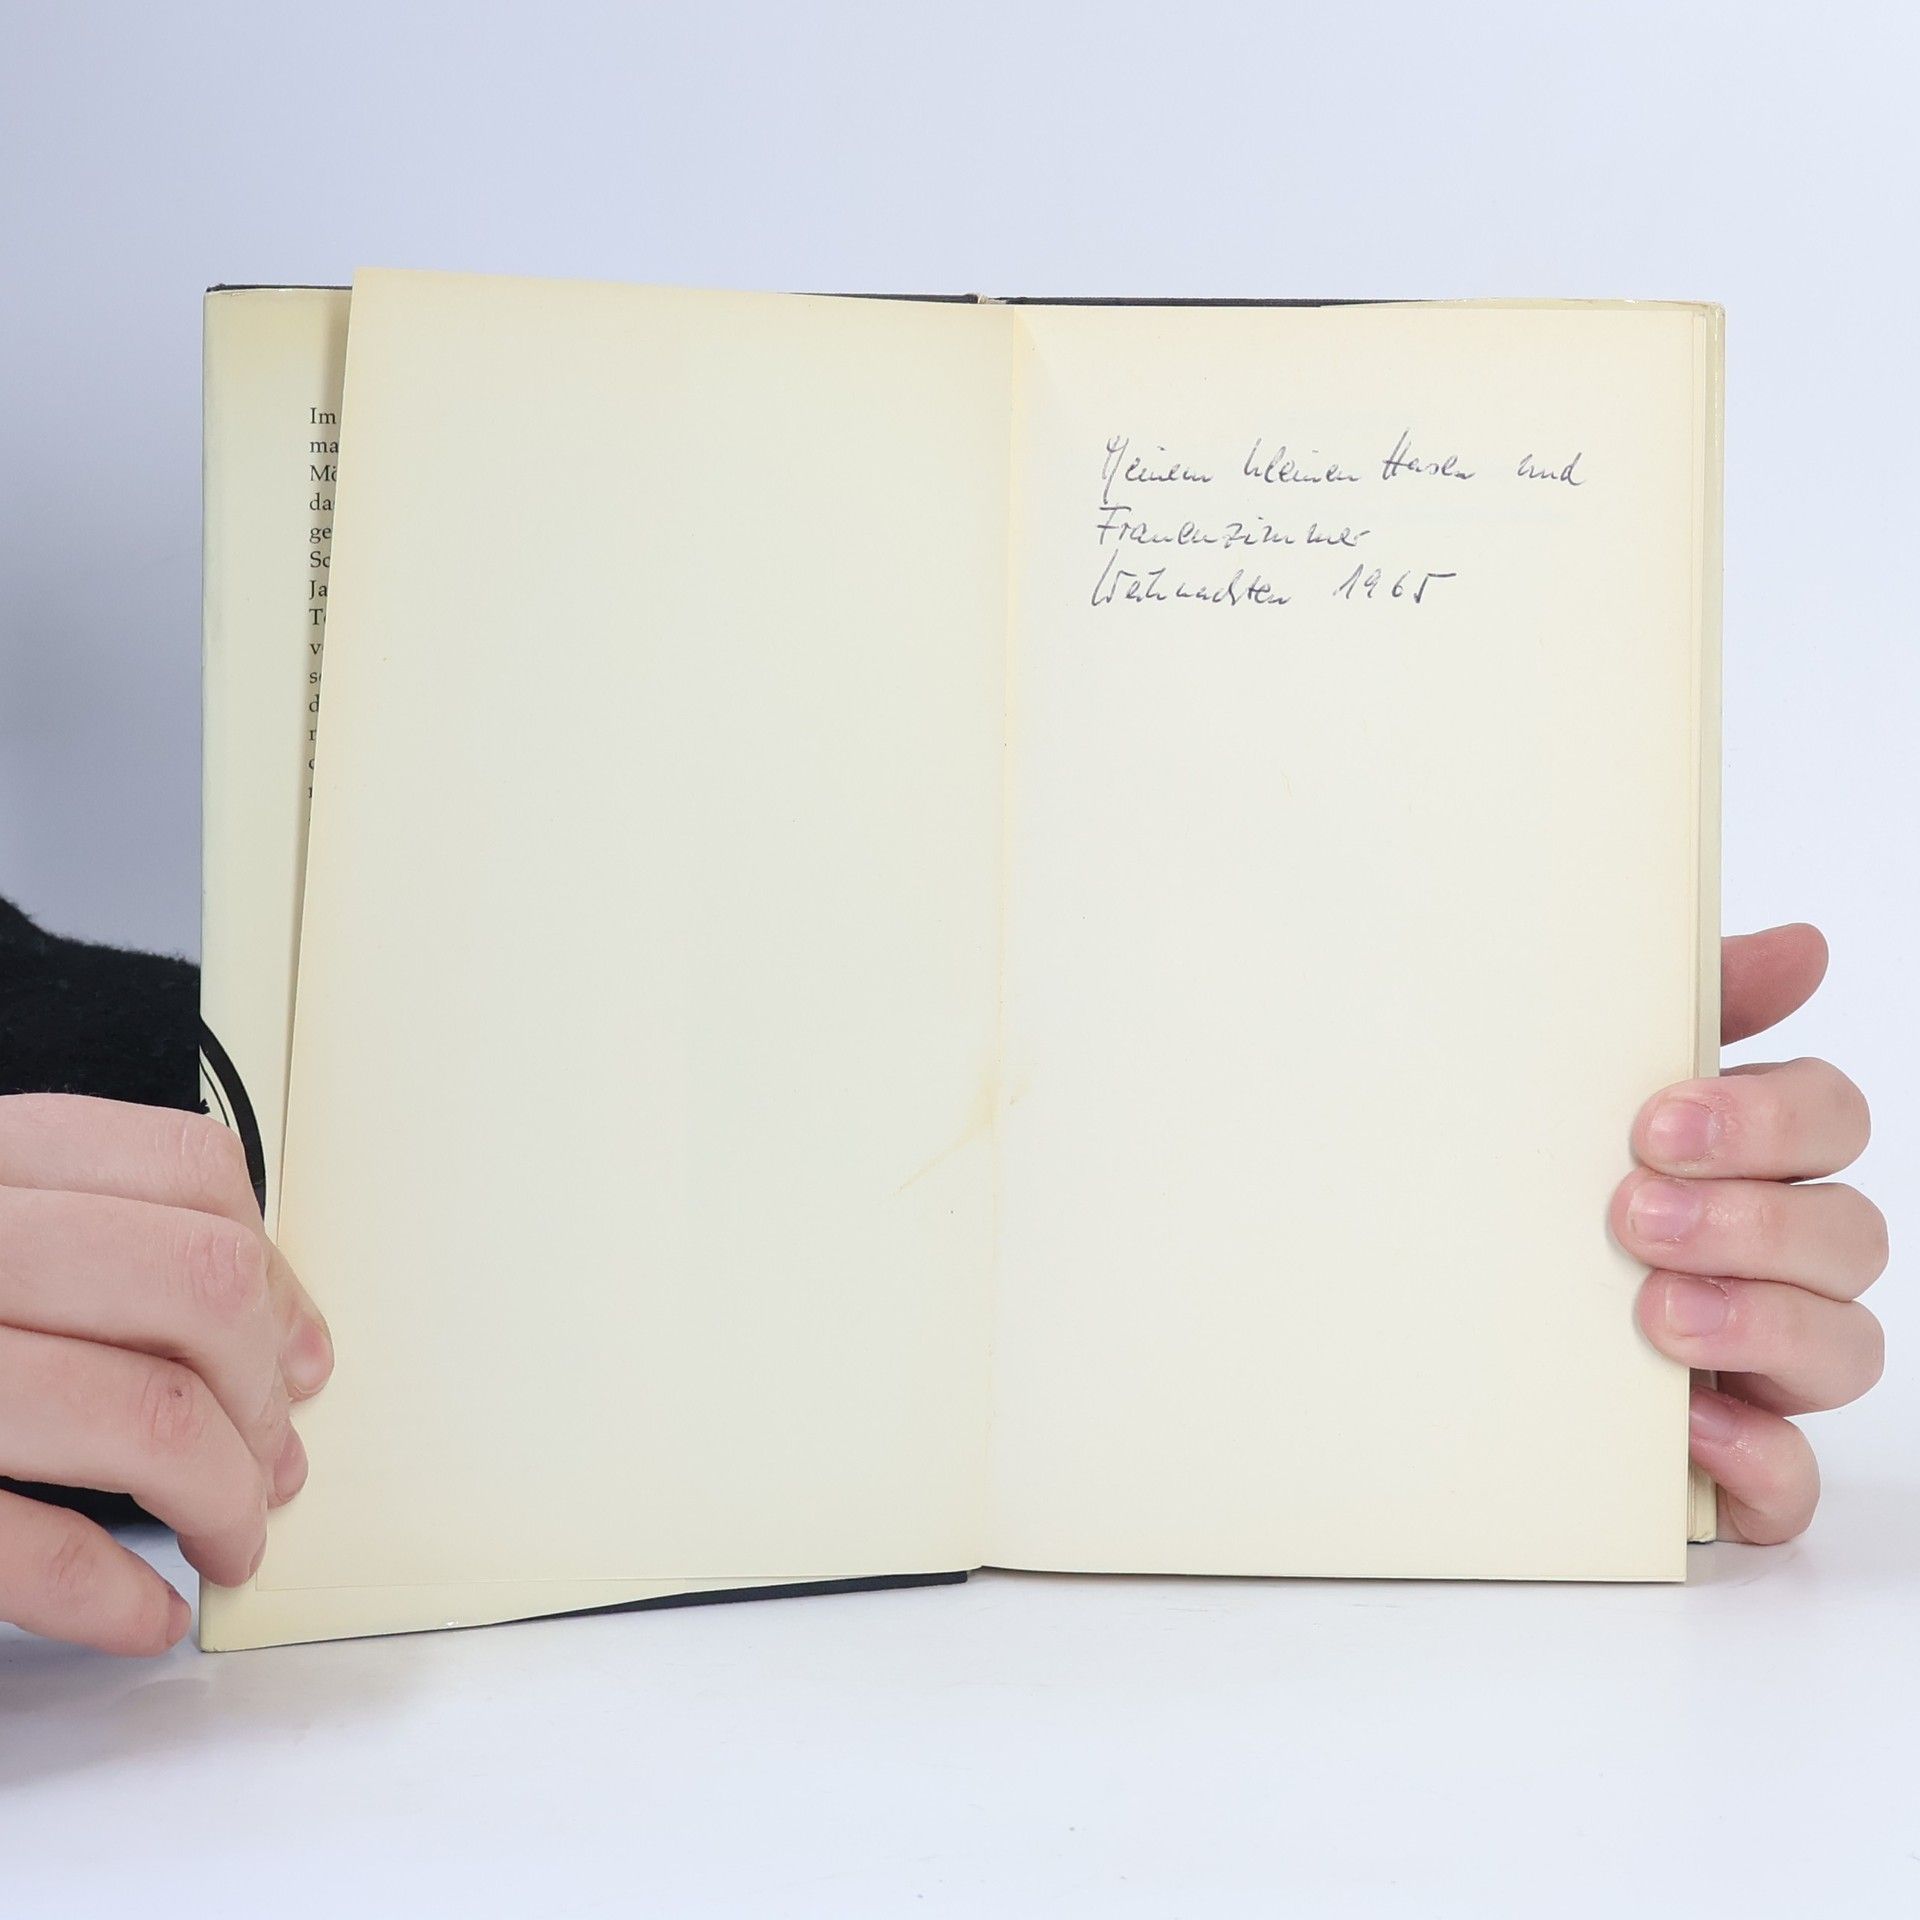 Im
ma
Mö
da
ge
Sc
Ja
Te
v
se
d
Meinem kleinen Hasen und
Frauenzimmer
Weihnachten 1965